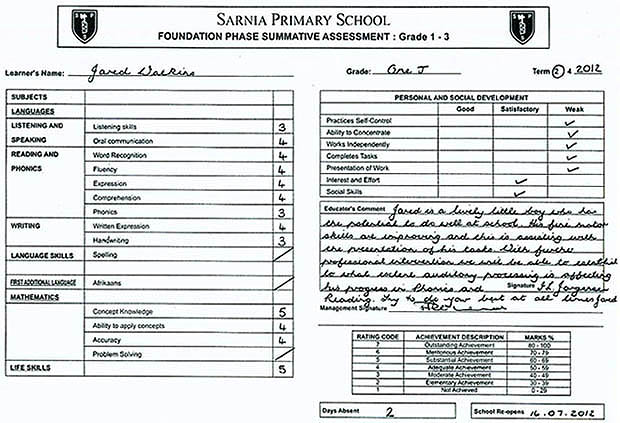 SARNIA PRIMARY SCHOOL
FOUNDATION PHASE SUMMATIVE ASSESSMENT : Grade 1 - 3
Learner's Name: Jared Watkins
Grade: One J
Term 2 4 2012
SUBJECTS
LANGUAGES
LISTENING AND SPEAKING
Listening skills 3
Oral communication 4
READING AND PHONICS
Word Recognition 4
Fluency 4
Expression 4
Comprehension 4
Phonics 3
WRITING
Written Expression 4
Handwriting 3
LANGUAGE SKILLS Spelling
FIRST ADDITIONAL LANGUAGE Afrikaans
MATHEMATICS
Concept Knowledge 5
Ability to apply concepts 4
Accuracy 4
Problem Solving
LIFE SKILLS 5
PERSONAL AND SOCIAL DEVELOPMENT
Good Satisfactory Weak
Practices Self-Control ✓
Ability to Concentrate ✓
Works Independently ✓
Completes Tasks ✓
Presentation of Work ✓
Interest and Effort ✓
Social Skills ✓
Educator's Comment Jared is a lively little boy who has
the potential to do well at school. His fine motor
skills are improving and this is assisting with
the presentation of his tasks. With
professional intervention we will be able to establish
to what extent auditory processing is affecting
his progress in Phonics and Signature
Reading. Try to do your best at all times Jared
Management Signature
RATING CODE ACHIEVEMENT DESCRIPTION MARKS %
7 Outstanding Achievement 80 - 100
6 Meritorious Achievement 70 - 79
5 Substantial Achievement 60 - 69
4 Adequate Achievement 50 - 59
3 Moderate Achievement 40 - 49
2 Elementary Achievement 30 - 39
1 Not Achieved 0 - 29
Days Absent 2
School Re-opens 16.07.2012